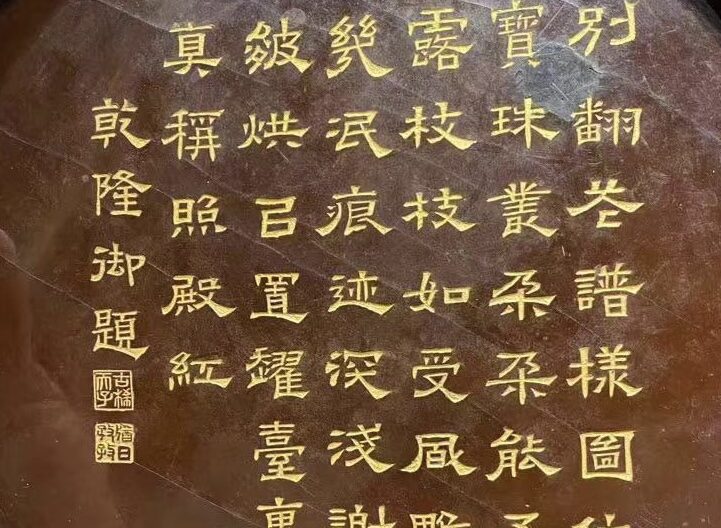 別翻花譜樣圖
寶珠叢朵朵能
露枝枝如受風
幾泯痕迹深淺謝
皴烘㠯置耀臺
真稱照殿紅
乾隆御題
古稀天子
猶日孜孜